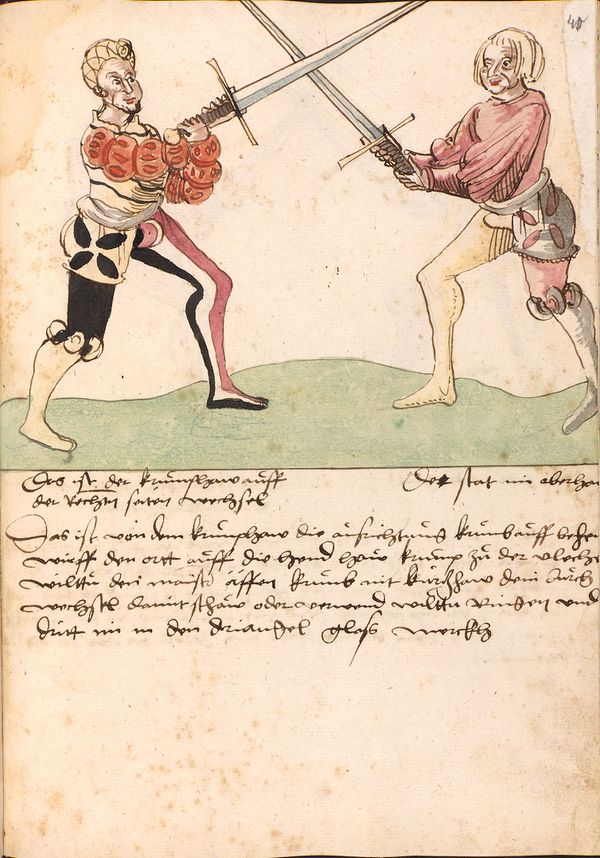 40
Das ist der krumphaw auff
der Rechten seiten wechsel
Der stat im oberhaw
Das ist von dem krumphaw die ausrichtung krumb auff behe
wirff den ortt auff die hend haw krump zu der fleche
wilttu den maister äffen krumb nit kurtzhaw dein durch
wechsel damit schaw oder verwend wilttu Ringen und
dritt im in den driangel glass